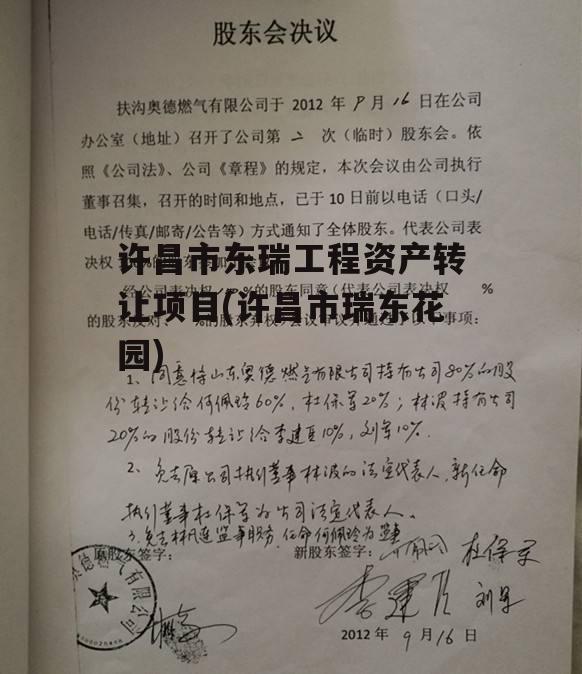 股东会决议
扶沟奥德燃气有限公司于 2012 年 9 月 16 日在公司
办公室（地址）召开了公司第 二 次（临时）股东会。依
照《公司法》、公司《章程》的规定，本次会议由公司执行
董事召集，召开的时间和地点，已于 10 日前以电话（口头/
电话/传真/邮寄/公告等）方式通知了全体股东。代表公司表
决权
许昌市东瑞工程资产转
%的股东同意（代表公司表决权 %
让项目(许昌市瑞东花
的股东反对、 %的股东弃权 事项：
园)
1、同意将山东奥德燃气有限公司持有公司80%的股
份转让给何佩玲60%，杜保军20%；林波持有公司
20%的股份转让给李建 10%，刘军10%．
2、免去原公司执行董事林波的法定代表人，新任命
执行董事杜保军为公司法定代表人．
3、免去林 监事职务，任命何佩玲为监事
原股东签字：
新股东签字：
杜保军
李建
刘军
2012 年 9 月 16 日